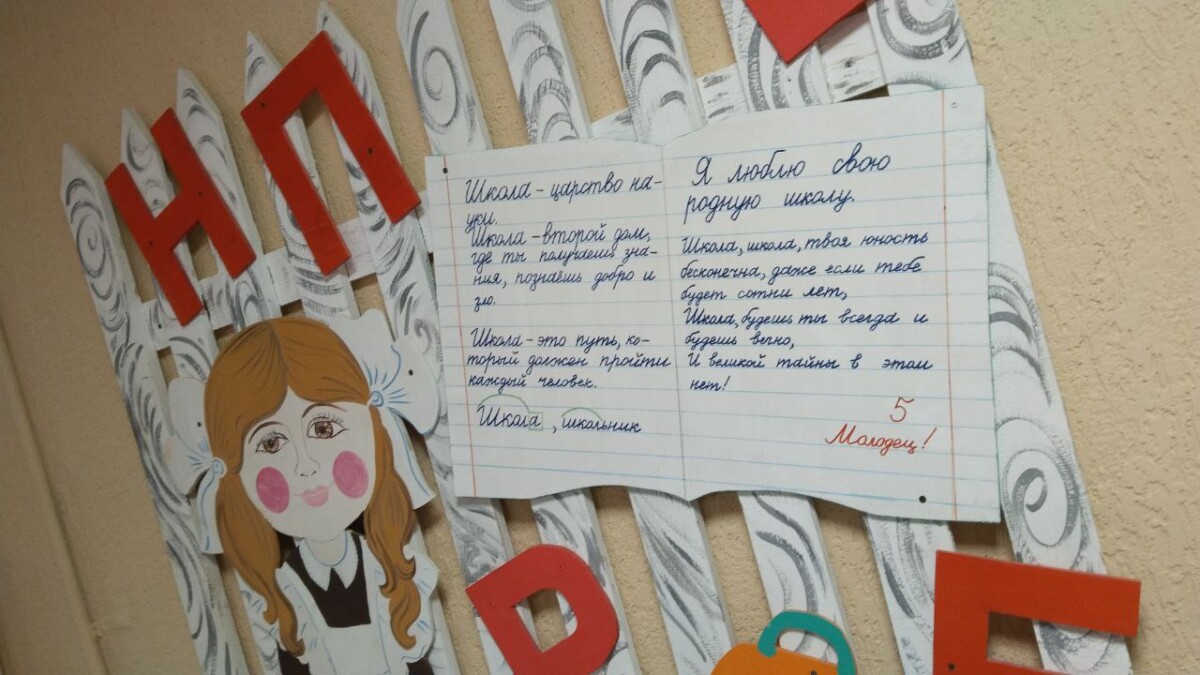 НП
Школа – царство на-
уки.
Школа – второй дом,
где ты получаешь зна-
ния, познаёшь добро и
зло.
Школа – это путь, ко-
торый должен пройти
каждый человек.
Школа, школьник
Я люблю свою
родную школу.
Школа, школа, твоя юность
бесконечна, даже если тебе
будет сотни лет,
Школа, будешь ты всегда и
будешь вечно,
И великой тайны в этом
нет!
5
Молодец!